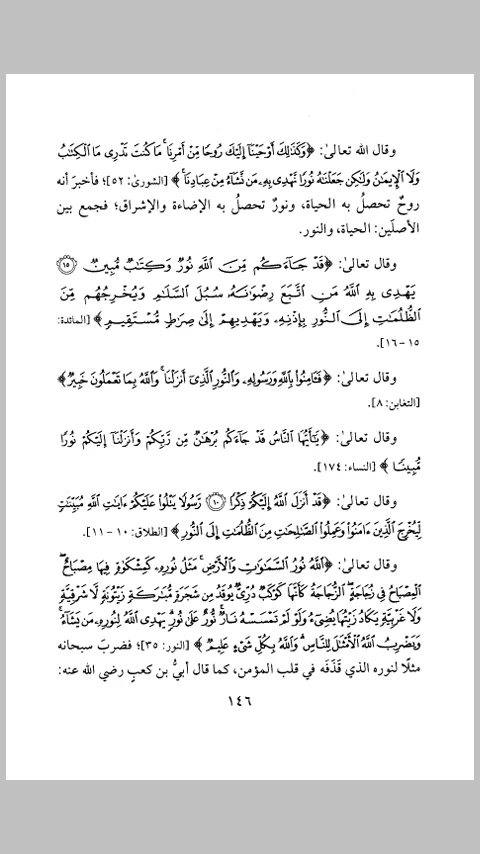 وقال الله تعالىٰ: ﴿وَكَذَٰلِكَ أَوْحَيْنَا إِلَيْكَ رُوحًا مِّنْ أَمْرِنَا ۚ مَا كُنتَ تَدْرِى مَا ٱلْكِتَٰبُ
وَلَا ٱلْإِيمَٰنُ وَلَٰكِن جَعَلْنَٰهُ نُورًا نَّهْدِى بِهِۦ مَن نَّشَآءُ مِنْ عِبَادِنَا ۚ﴾ [الشورىٰ: ٥٢]؛ فأخبرَ أنه
روحٌ تحصلُ به الحياة، ونورٌ تحصلُ به الإضاءة والإشراق؛ فجمع بين
الأصلَين: الحياة، والنور.
وقال تعالىٰ: ﴿قَدْ جَآءَكُم مِّنَ ٱللَّهِ نُورٌ وَكِتَٰبٌ مُّبِينٌ ۝١٥
يَهْدِى بِهِ ٱللَّهُ مَنِ ٱتَّبَعَ رِضْوَٰنَهُۥ سُبُلَ ٱلسَّلَٰمِ وَيُخْرِجُهُم مِّنَ
ٱلظُّلُمَٰتِ إِلَى ٱلنُّورِ بِإِذْنِهِۦ وَيَهْدِيهِمْ إِلَىٰ صِرَٰطٍ مُّسْتَقِيمٍ﴾ [المائدة:
١٥-١٦].
وقال تعالىٰ: ﴿فَـَٔامِنُوا۟ بِٱللَّهِ وَرَسُولِهِۦ وَٱلنُّورِ ٱلَّذِىٓ أَنزَلْنَا ۚ وَٱللَّهُ بِمَا تَعْمَلُونَ خَبِيرٌ﴾
[التغابن: ٨].
وقال تعالىٰ: ﴿يَٰٓأَيُّهَا ٱلنَّاسُ قَدْ جَآءَكُم بُرْهَٰنٌ مِّن رَّبِّكُمْ وَأَنزَلْنَآ إِلَيْكُمْ نُورًا
مُّبِينًا﴾ [النساء: ١٧٤].
وقال تعالىٰ: ﴿قَدْ أَنزَلَ ٱللَّهُ إِلَيْكُمْ ذِكْرًا ۝١٠ رَّسُولًا يَتْلُوا۟ عَلَيْكُمْ ءَايَٰتِ ٱللَّهِ مُبَيِّنَٰتٍ
لِّيُخْرِجَ ٱلَّذِينَ ءَامَنُوا۟ وَعَمِلُوا۟ ٱلصَّٰلِحَٰتِ مِنَ ٱلظُّلُمَٰتِ إِلَى ٱلنُّورِ﴾ [الطلاق: ١٠-١١].
وقال تعالىٰ: ﴿ٱللَّهُ نُورُ ٱلسَّمَٰوَٰتِ وَٱلْأَرْضِ ۚ مَثَلُ نُورِهِۦ كَمِشْكَوٰةٍ فِيهَا مِصْبَاحٌ ۖ
ٱلْمِصْبَاحُ فِى زُجَاجَةٍ ۖ ٱلزُّجَاجَةُ كَأَنَّهَا كَوْكَبٌ دُرِّىٌّ يُوقَدُ مِن شَجَرَةٍ مُّبَٰرَكَةٍ زَيْتُونَةٍ لَّا شَرْقِيَّةٍ
وَلَا غَرْبِيَّةٍ يَكَادُ زَيْتُهَا يُضِىٓءُ وَلَوْ لَمْ تَمْسَسْهُ نَارٌ ۚ نُّورٌ عَلَىٰ نُورٍ ۗ يَهْدِى ٱللَّهُ لِنُورِهِۦ مَن يَشَآءُ ۚ
وَيَضْرِبُ ٱللَّهُ ٱلْأَمْثَٰلَ لِلنَّاسِ ۗ وَٱللَّهُ بِكُلِّ شَىْءٍ عَلِيمٌ﴾ [النور: ٣٥]؛ فضربَ سبحانه
مثلًا لنوره الذي قذَفَه في قلب المؤمن، كما قال أبيُّ بن كعبٍ رضي الله عنه:
١٤٦